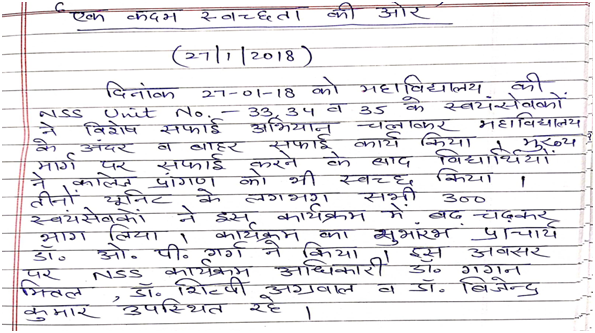 एक कदम स्वच्छता की ओर
(27/1/2018)
दिनांक 27-01-18 को महाविद्यालय की
NSS Unit No. - 33, 34 व 35 के स्वयंसेवकों
ने विशेष सफाई अभियान चलाकर महाविद्यालय
के अंदर व बाहर सफाई कार्य किया । मुख्य
मार्ग पर सफाई करने के बाद विद्यार्थियों
ने कालेज प्रांगण को भी स्वच्छ किया ।
तीनों यूनिट के लगभग सभी 300
स्वयंसेवकों ने इस कार्यक्रम में बढ़ चढ़कर
भाग लिया । कार्यक्रम का शुभारंभ प्राचार्य
डॉ. ओ. पी. गर्ग ने किया । इस अवसर
पर NSS कार्यक्रम अधिकारी डॉ. गगन
मित्तल , डॉ. शिल्पी अग्रवाल व डॉ. बिजेन्द्र
कुमार उपस्थित रहे ।